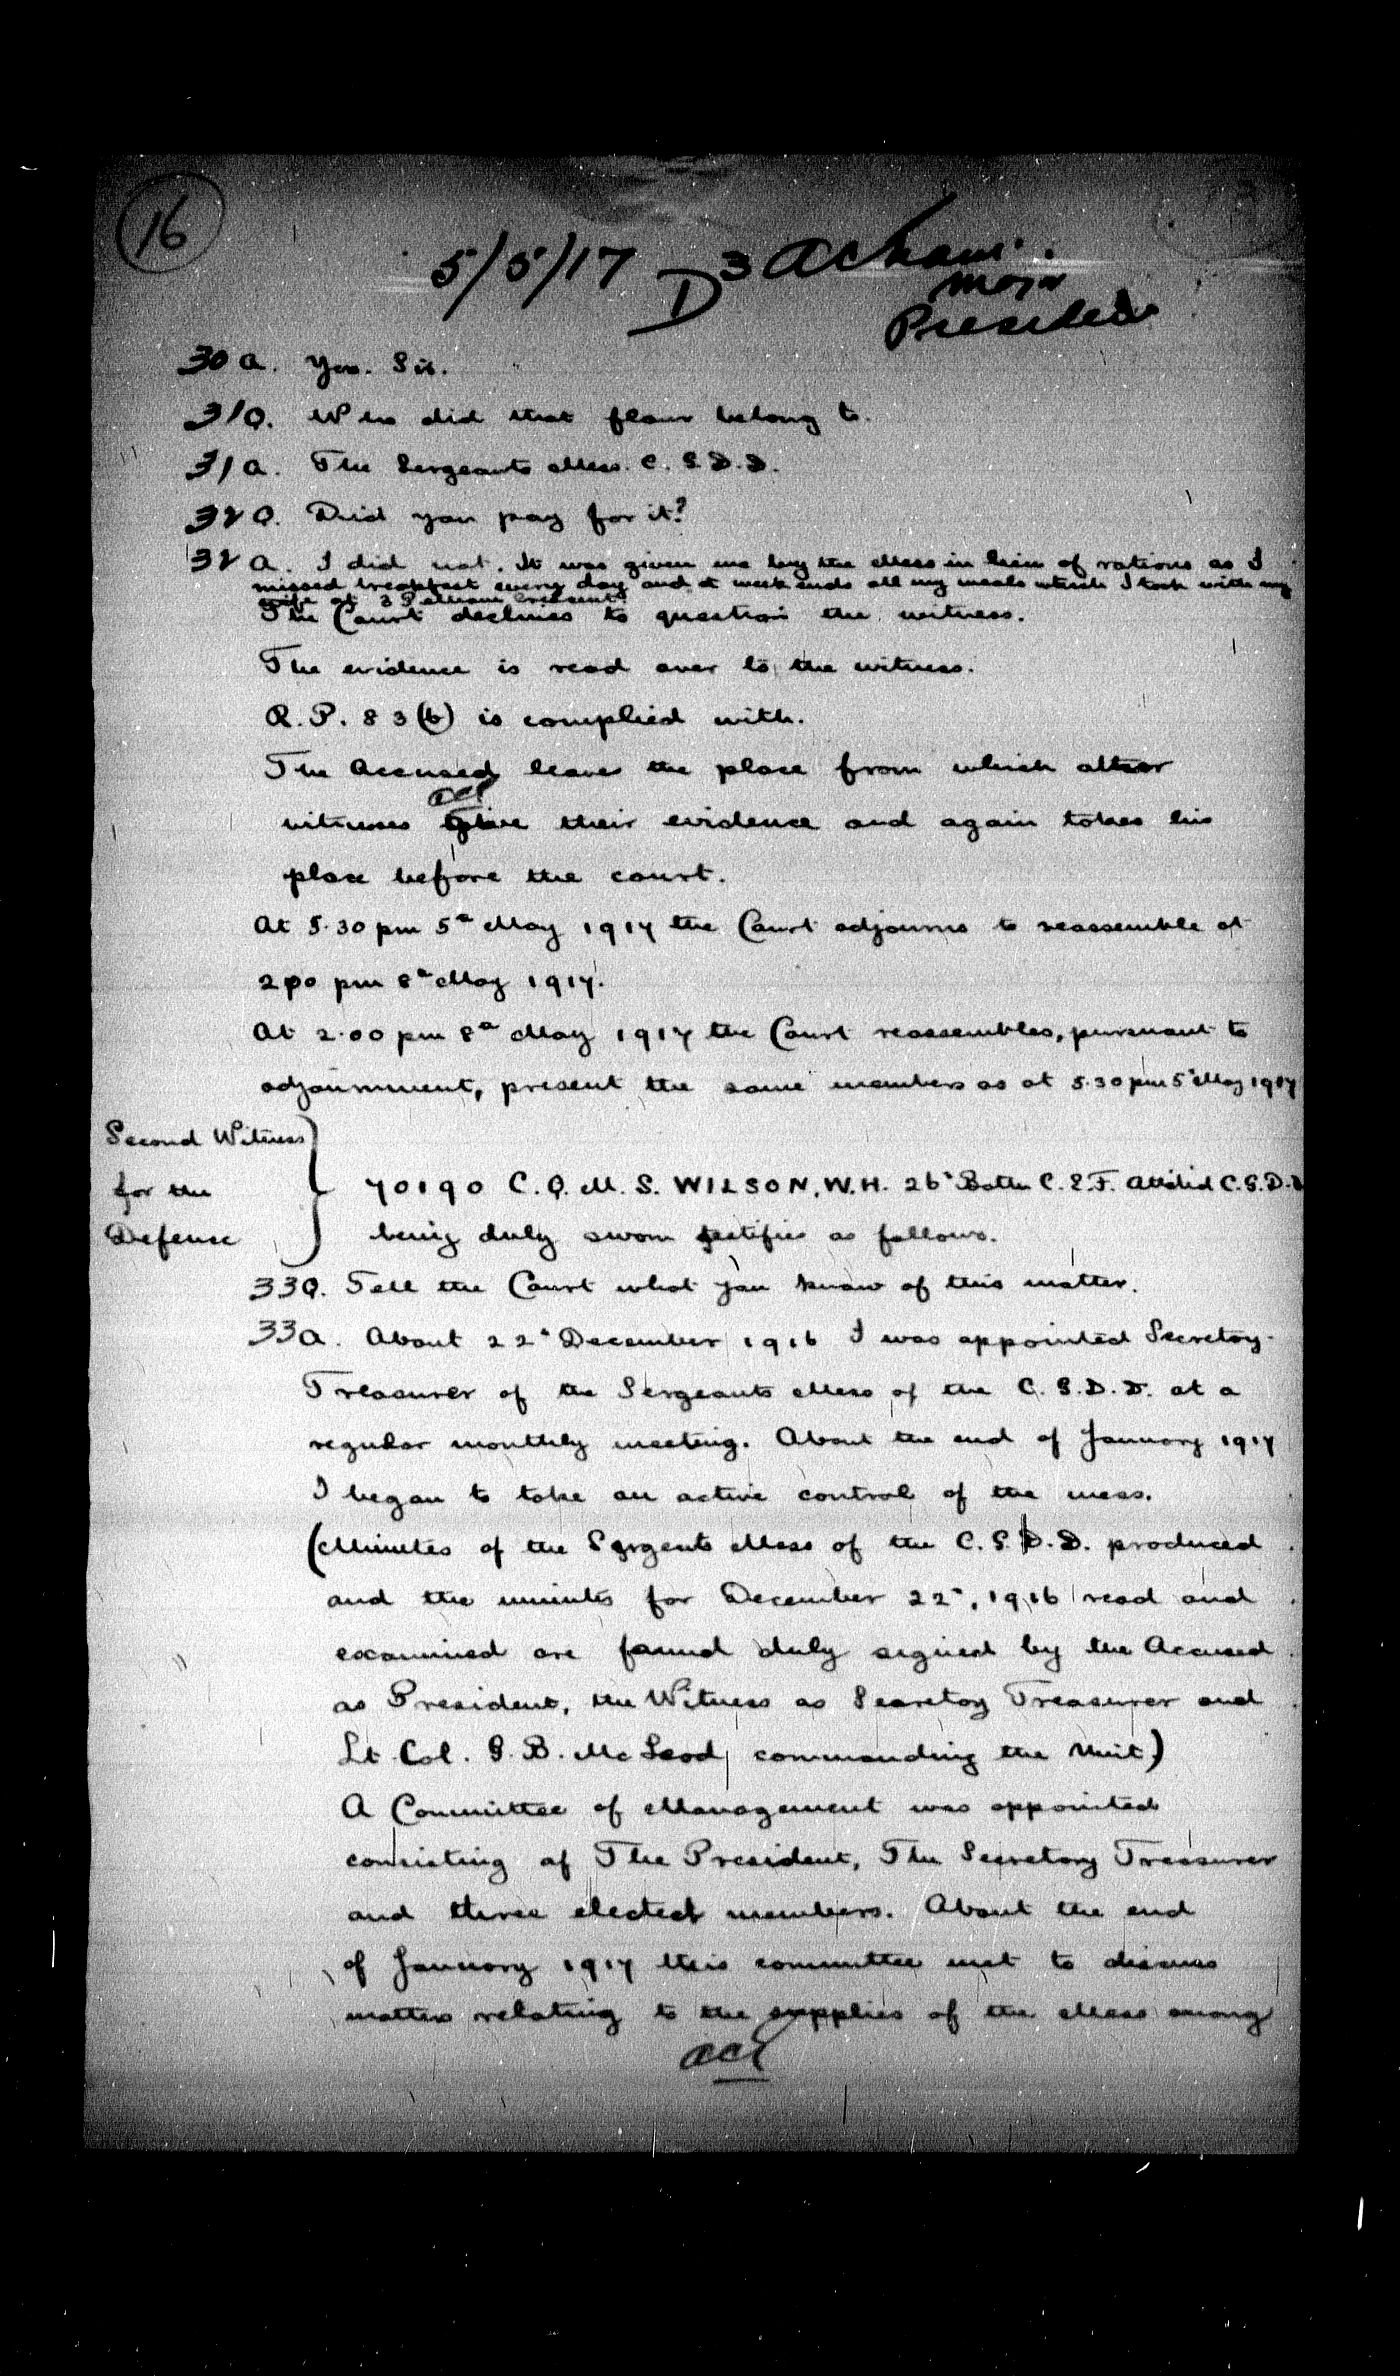 16
5/5/17 D3
Major
President
30 A. Yes. Sir.
31 Q. Who did that flour belong to.
31 A. The Sergeants Mess. C.G.D.D.
32 Q. Did you pay for it?
32 A. I did not. It was given me by the Mess in lieu of rations as I
missed breakfast every day and at week ends all my meals which I took with my
wife at 3 Pelham Crescent.
The Court declines to question the witness.
The evidence is read over to the witness.
R.P. 83(b) is complied with.
The Accused leaves the place from which other
witnesses give their evidence and again takes his
place before the court.
At 5.30 pm 5th May 1917 the Court adjourns to reassemble at
2.00 pm 8th May 1917.
At 2.00 pm 8th May 1917 the Court reassembles, pursuant to
adjournment, present the same members as at 5.30 pm 5th May 1917
Second Witness
for the
Defense
70190 C.Q.M.S. WILSON, W.H. 26th Battn C.E.F. Attched C.G.D.D
being duly sworn testifies as follows.
33 Q. Tell the Court what you know of this matter.
33 A. About 22nd December 1916 I was appointed Secretary-
Treasurer of the Sergeants Mess of the C.G.D.D. at a
regular monthly meeting. About the end of January 1917
I began to take an active control of the mess.
(Minutes of the Sergents Mess of the C.G.D.D. produced
and the minutes for December 22nd, 1916 read and
examined are found duly signed by the Accused
as President, the Witness as Secretary Treasurer and
Lt. Col. G.B. McLeod, commanding the Unit)
A Committee of Management was appointed
consisting of The President, The Secretary Treasurer
and three elected members. About the end
of January 1917 this committee met to discuss
matters relating to the supplies of the Mess among